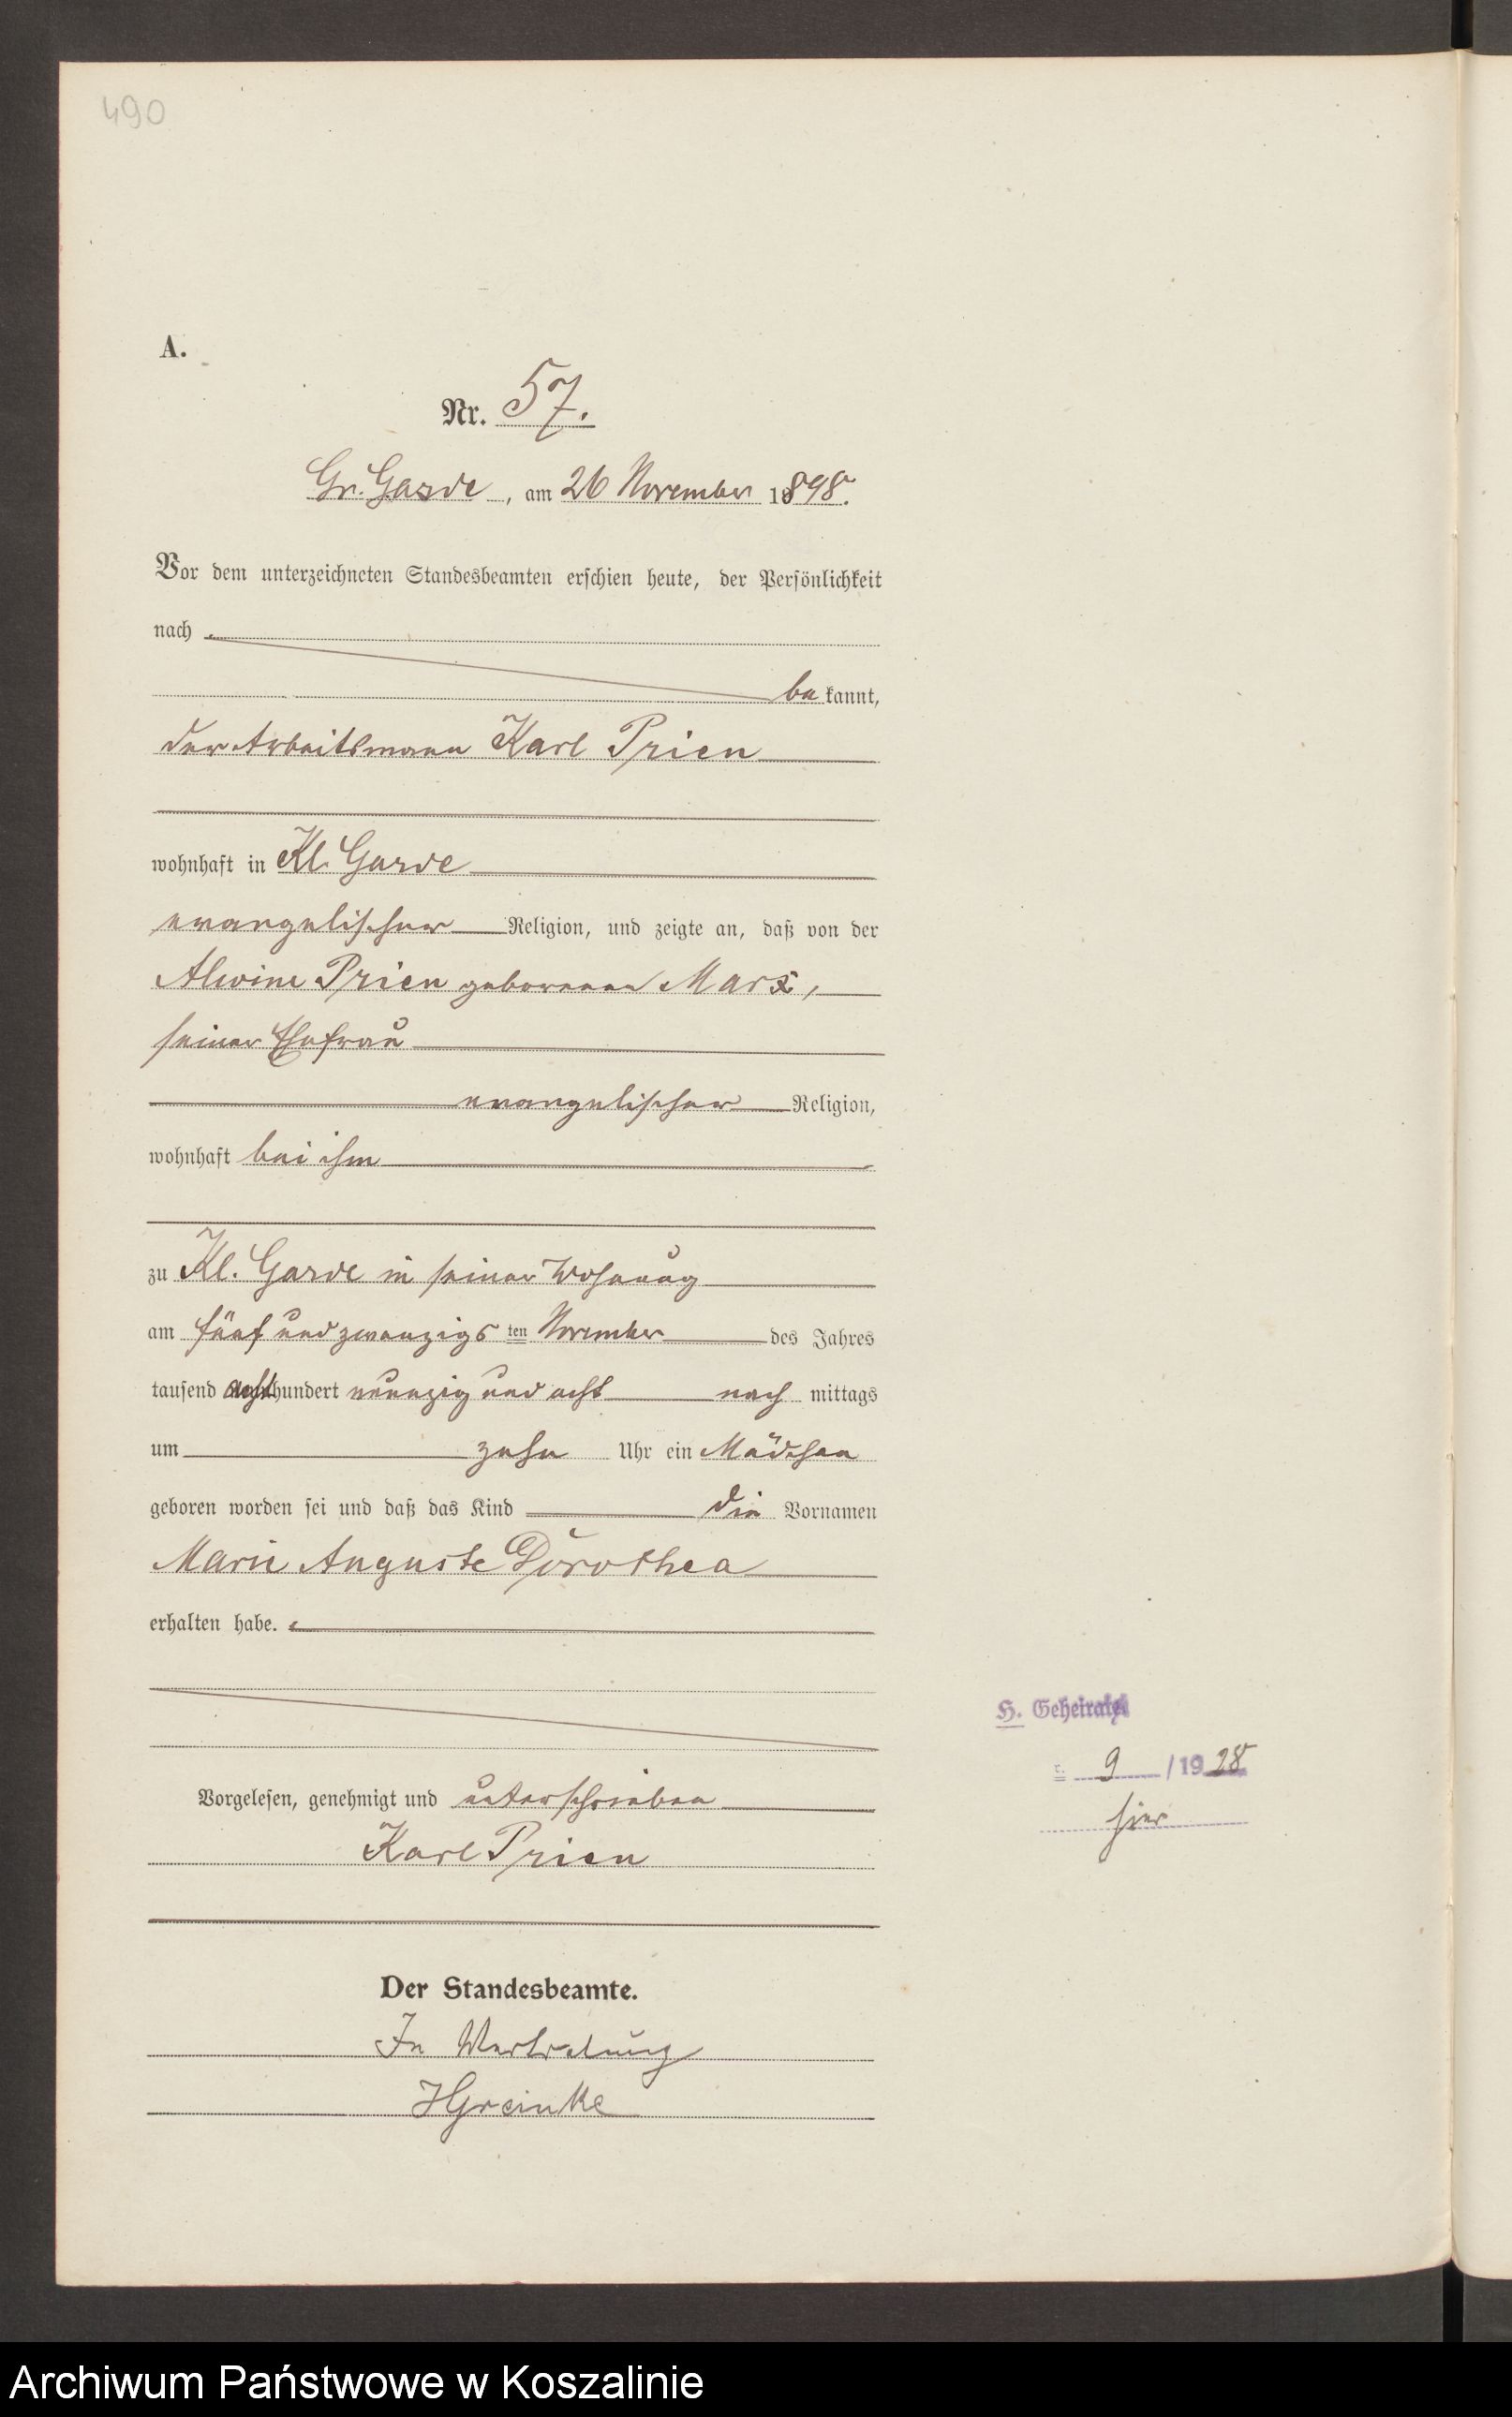 490
A.
Nr. 57.
Gr. Garde, am 26 November 1898.
Vor dem unterzeichneten Standesbeamten erschien heute, der Persönlichkeit
nach
be kannt,
der Arbeitsmann Karl Prien
wohnhaft in Kl. Garde
evangelischer Religion, und zeigte an, daß von der
Alwine Prien geborenen Marx,
seiner Ehefrau
evangelischer Religion,
wohnhaft bei ihm
zu Kl. Garde in seiner Wohnung
am fünf und zwanzigs ten November des Jahres
tausend achthundert neunzig und acht nach mittags
um zehn Uhr ein Mädchen
geboren worden sei und daß das Kind die Vornamen
Marie Auguste Dorothea
erhalten habe.
H. Geheiratet
9 / 1928
hier
Vorgelesen, genehmigt und unterschrieben
Karl Prien
Der Standesbeamte.
In Vertretung
HGreinke
Archiwum Państwowe w Koszalinie